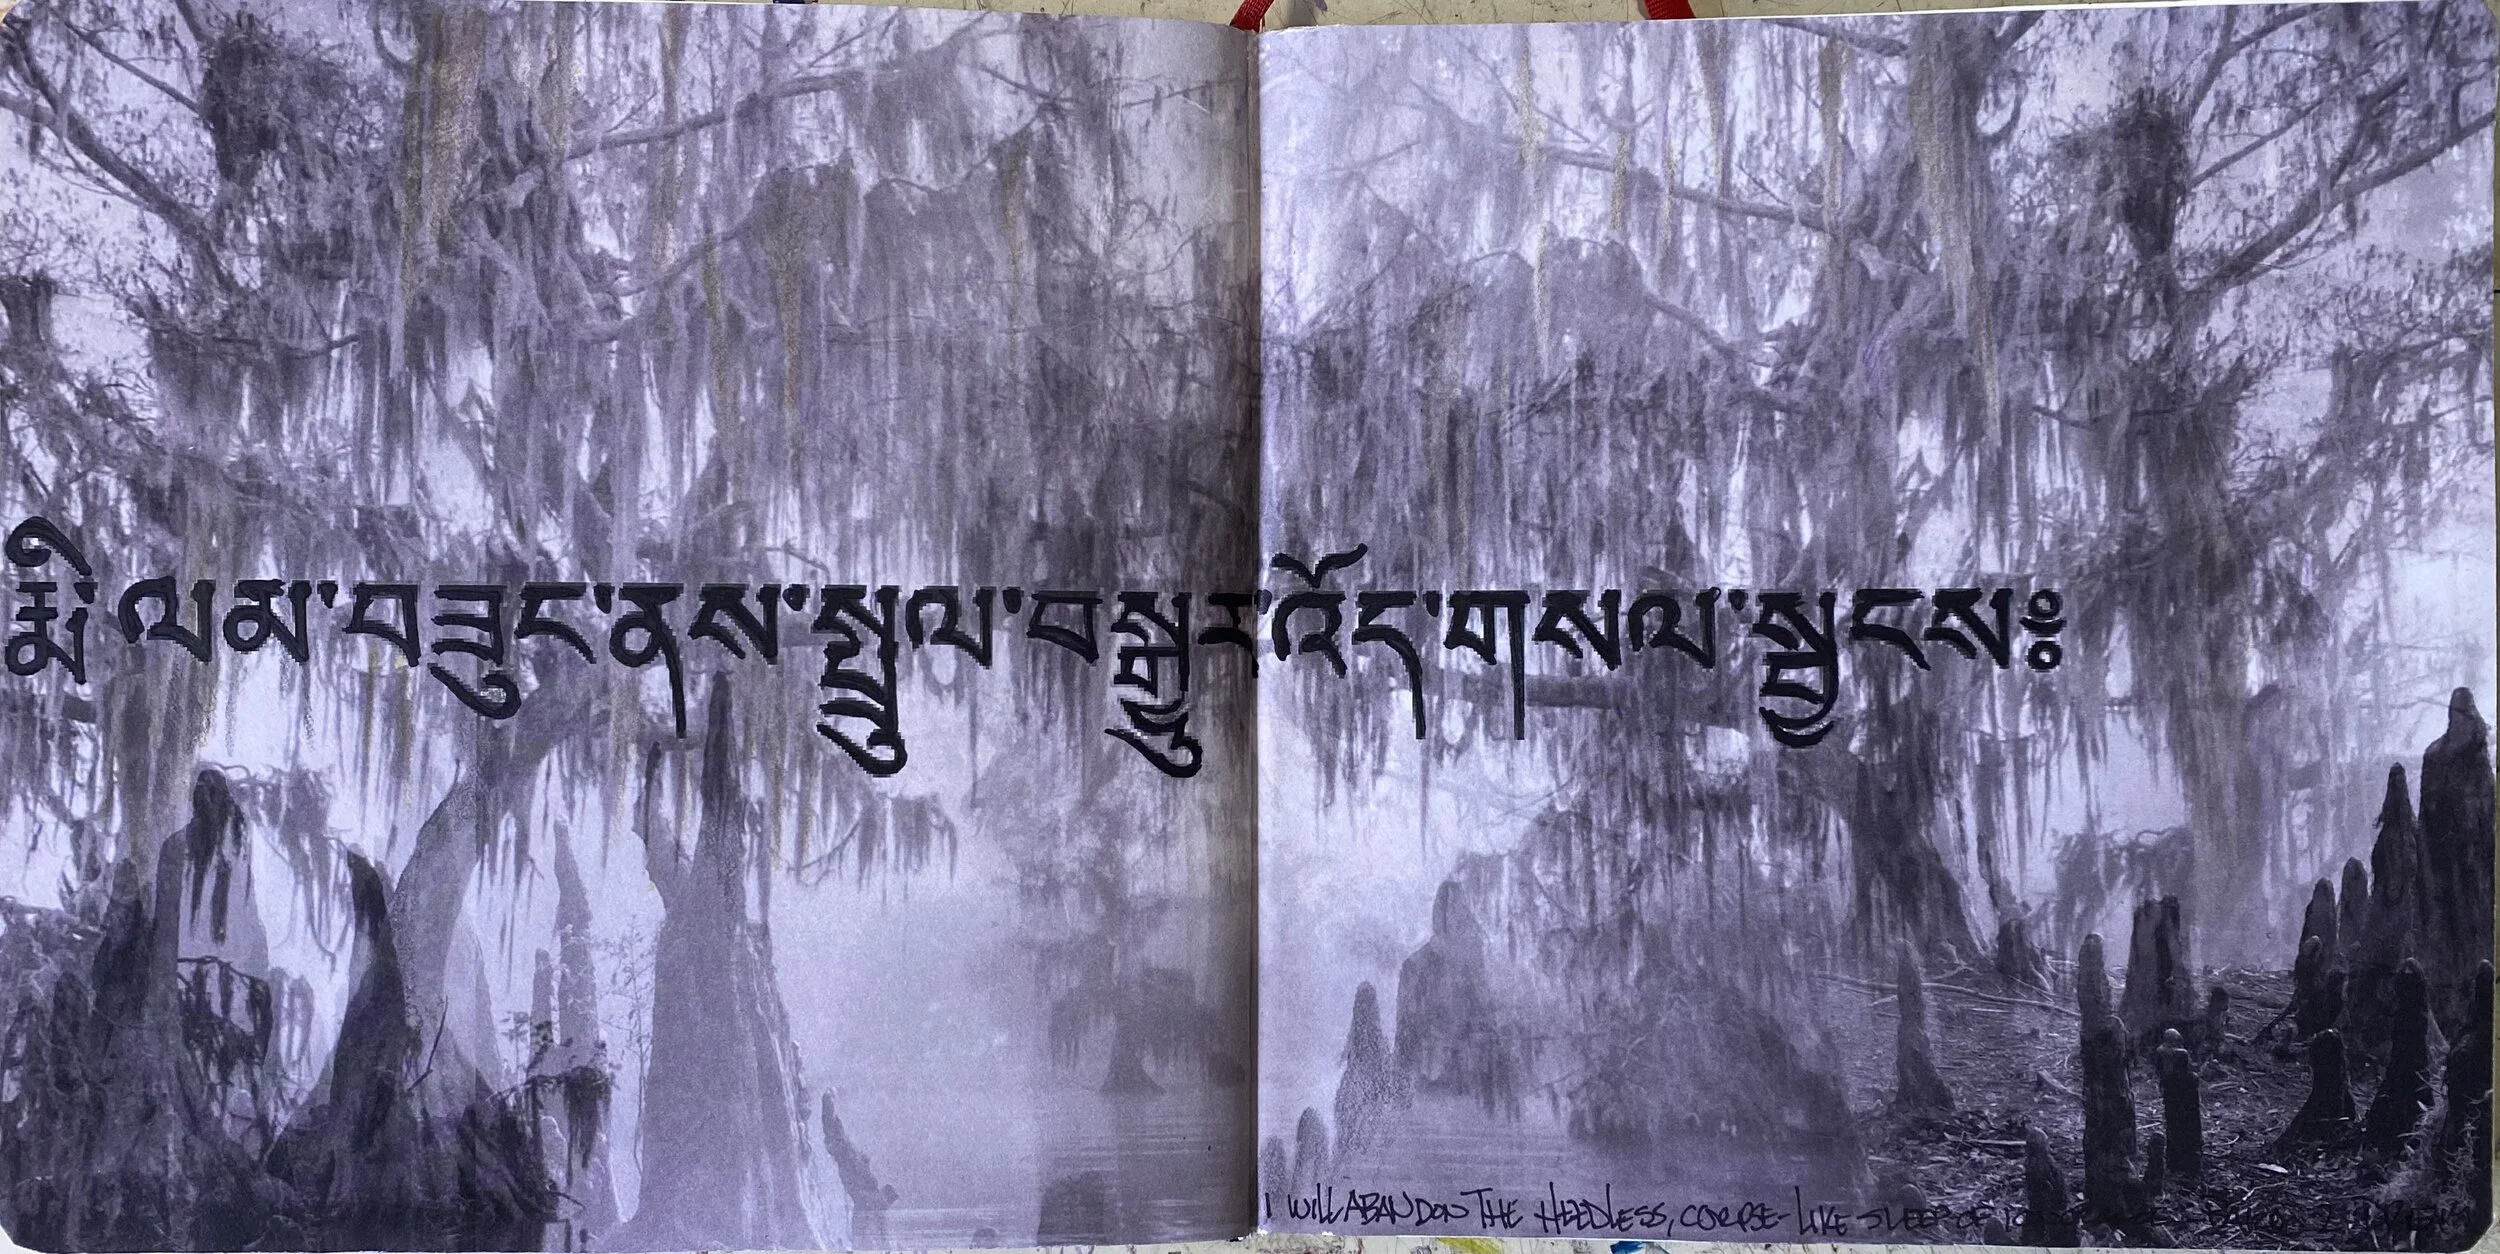 རྨི་ལམ་བཟུང་ནས་སྤྲུལ་བསྒྱུར་འོད་གསལ་སྦྱངས༔
I WILL ABANDON THE HEEDLESS, CORPSE-LIKE SLEEP OF